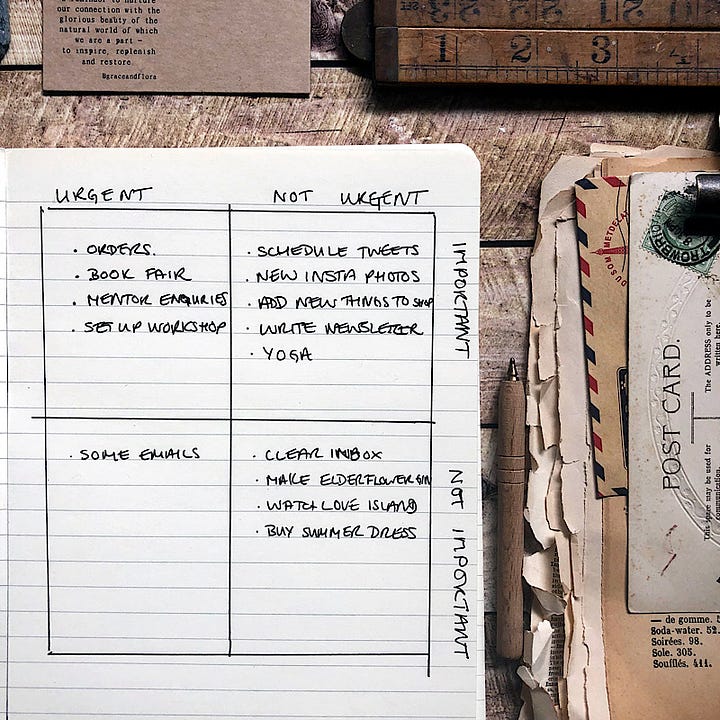 our connection with the
glorious beauty of the
natural world of which
we are a part —
to inspire, replenish
and restore.
@graceandflora
1 2 3 4
URGENT
NOT URGENT
· ORDERS.
· BOOK FAIR
· MENTOR ENQURIES
· SET UP WORKSHOP
· SCHEDULE TWEETS
· NEW INSTA PHOTOS
· ADD NEW THINGS TO SHOP
· WRITE NEWSLETTER
· YOGA
IMPORTANT
· SOME EMAILS
· CLEAR INBOX
· MAKE ELDERFLOWER GIN
· WATCH LOVE ISLAND
· BUY SUMMER DRESS
NOT IMPORTANT
POST CARD.
The ADDRESS only to be
written here.
This space may be used for
communication.
— de gomme.
Soda-water. 52.
Soirées. 98.
Sole. 305.
Soufflés. 411.